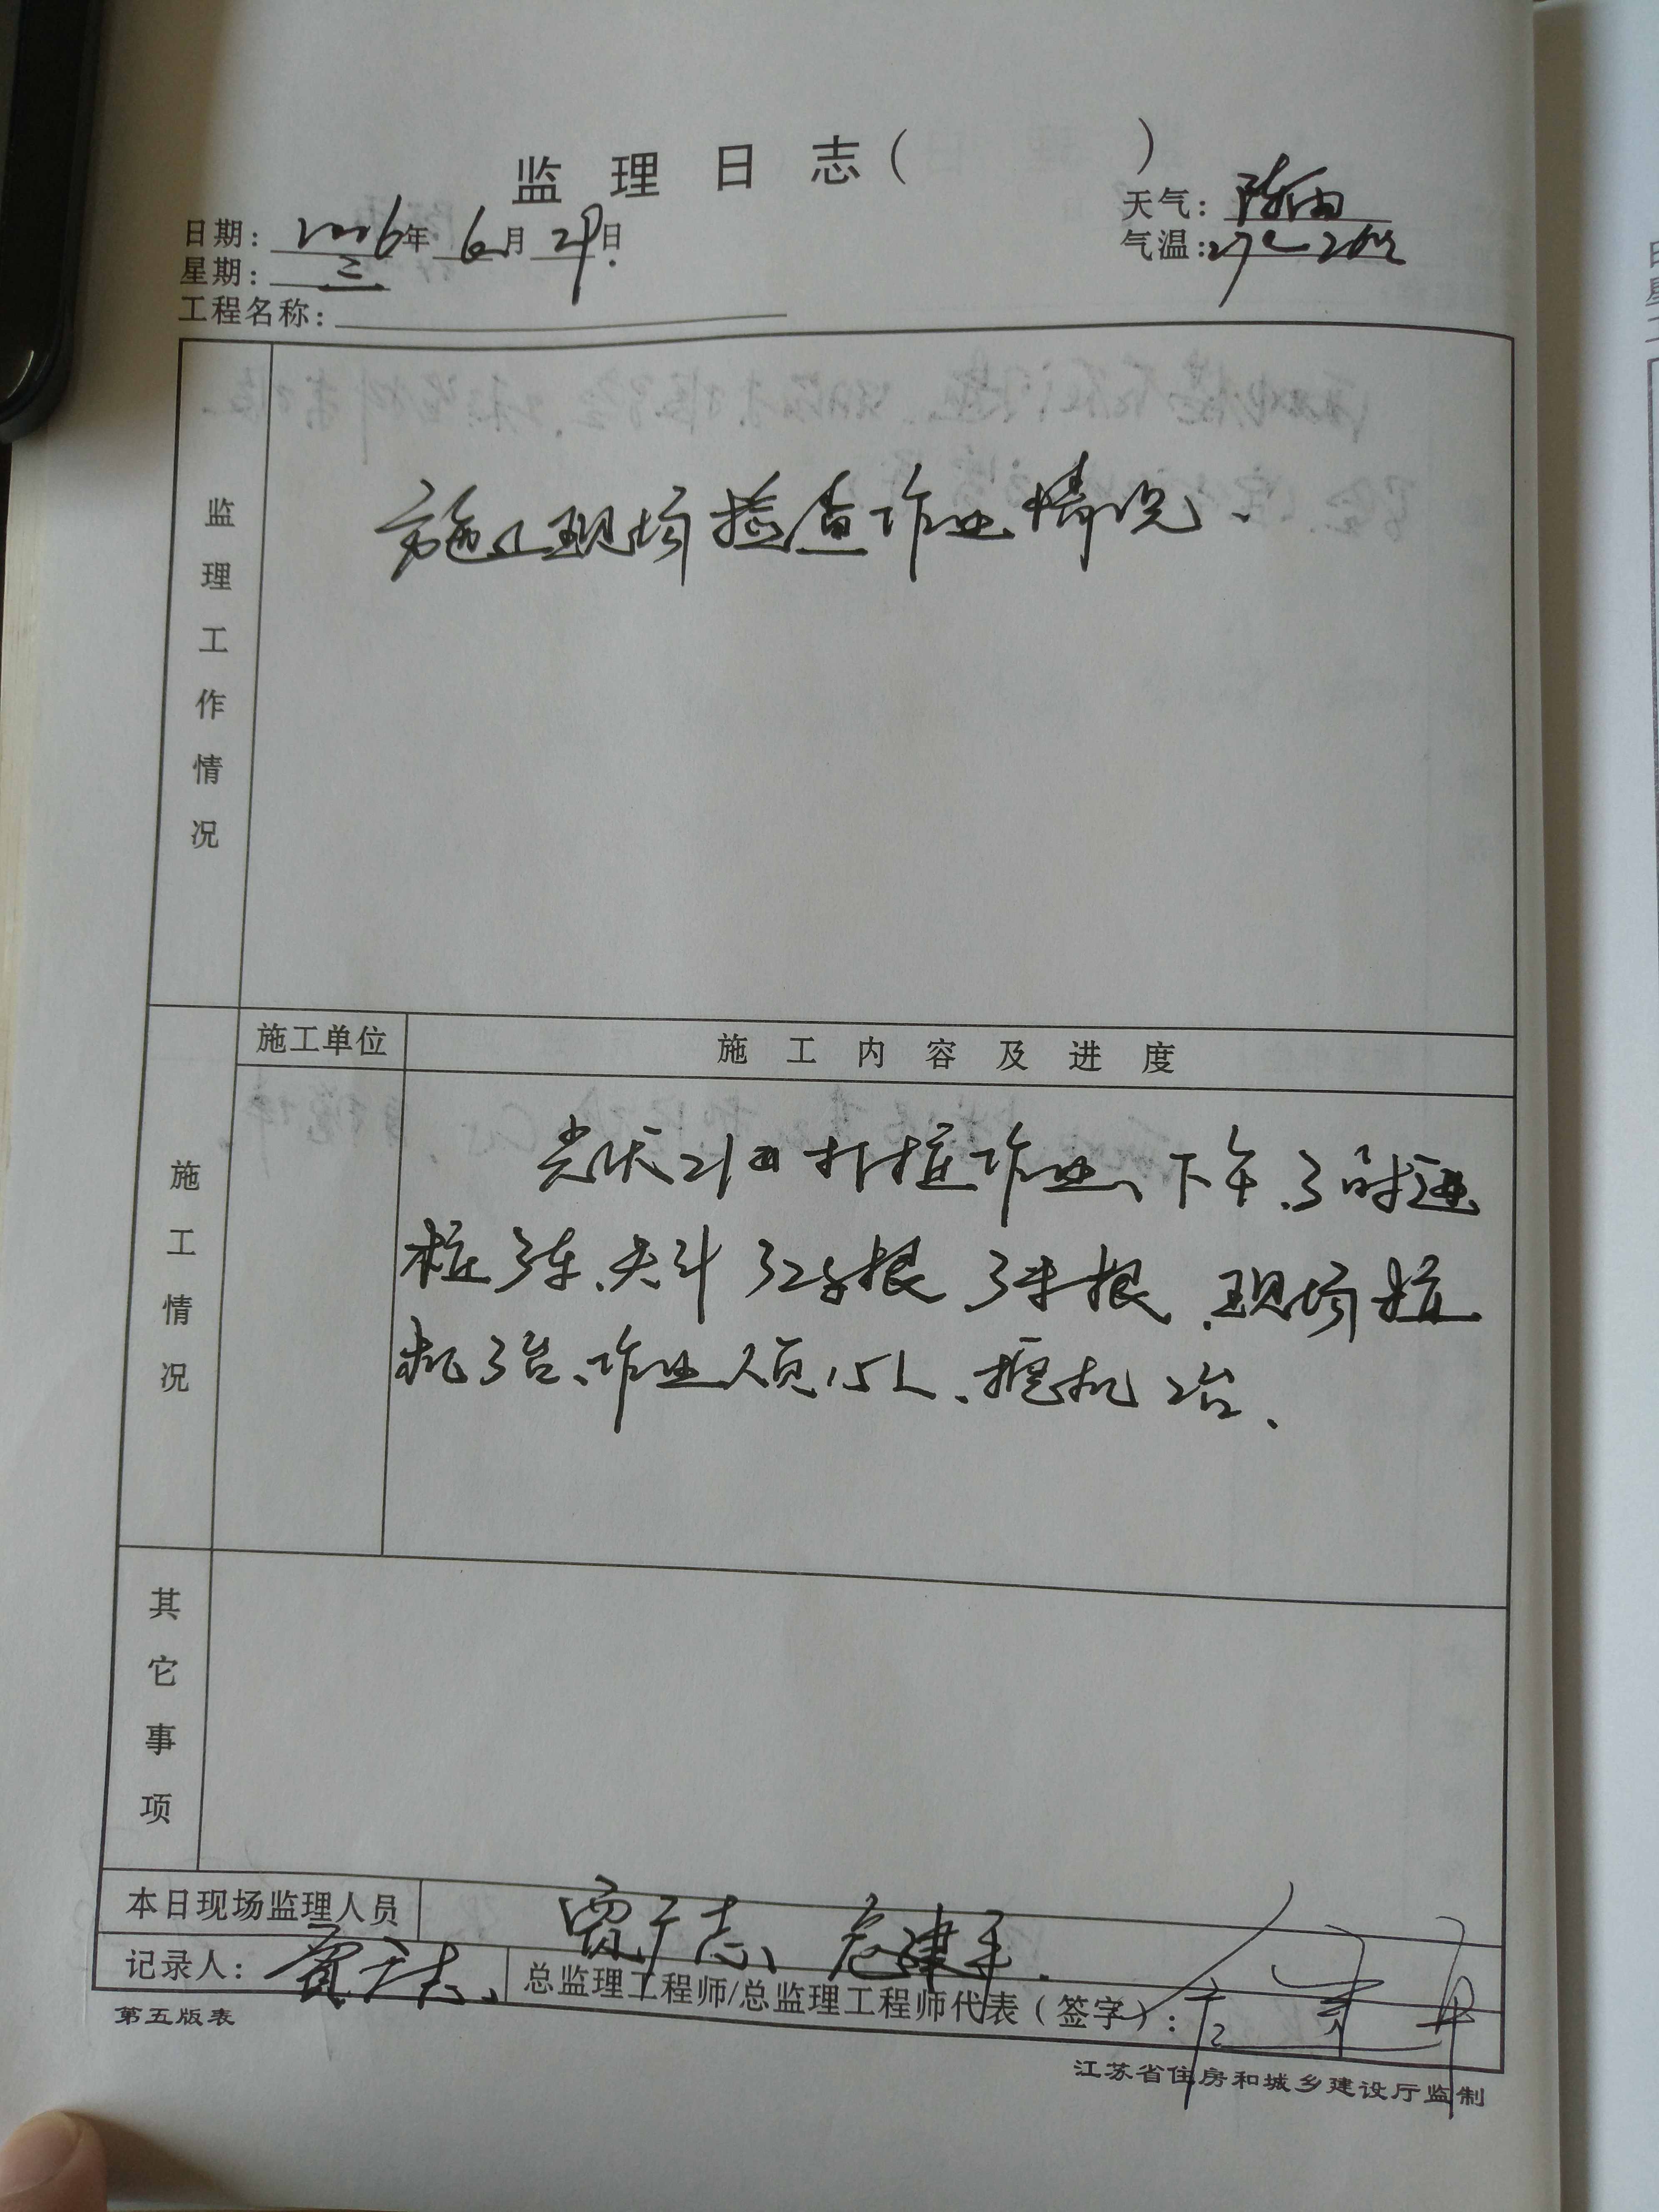 监理日志（ ）
日期：2016年6月29日
天气：阵雨
星期：三
气温：27℃
工程名称：
监理工作情况
施工现场检查作业情况、
施工单位
施工内容及进度
施工情况
打桩作业、下午、3时进
桩3车、 现场桩
机3台、作业人员15人、挖机2台、
其它事项
本日现场监理人员
贾广志、 建
记录人：贾广志、
总监理工程师/总监理工程师代表（签字）：
第五版表
江苏省住房和城乡建设厅监制